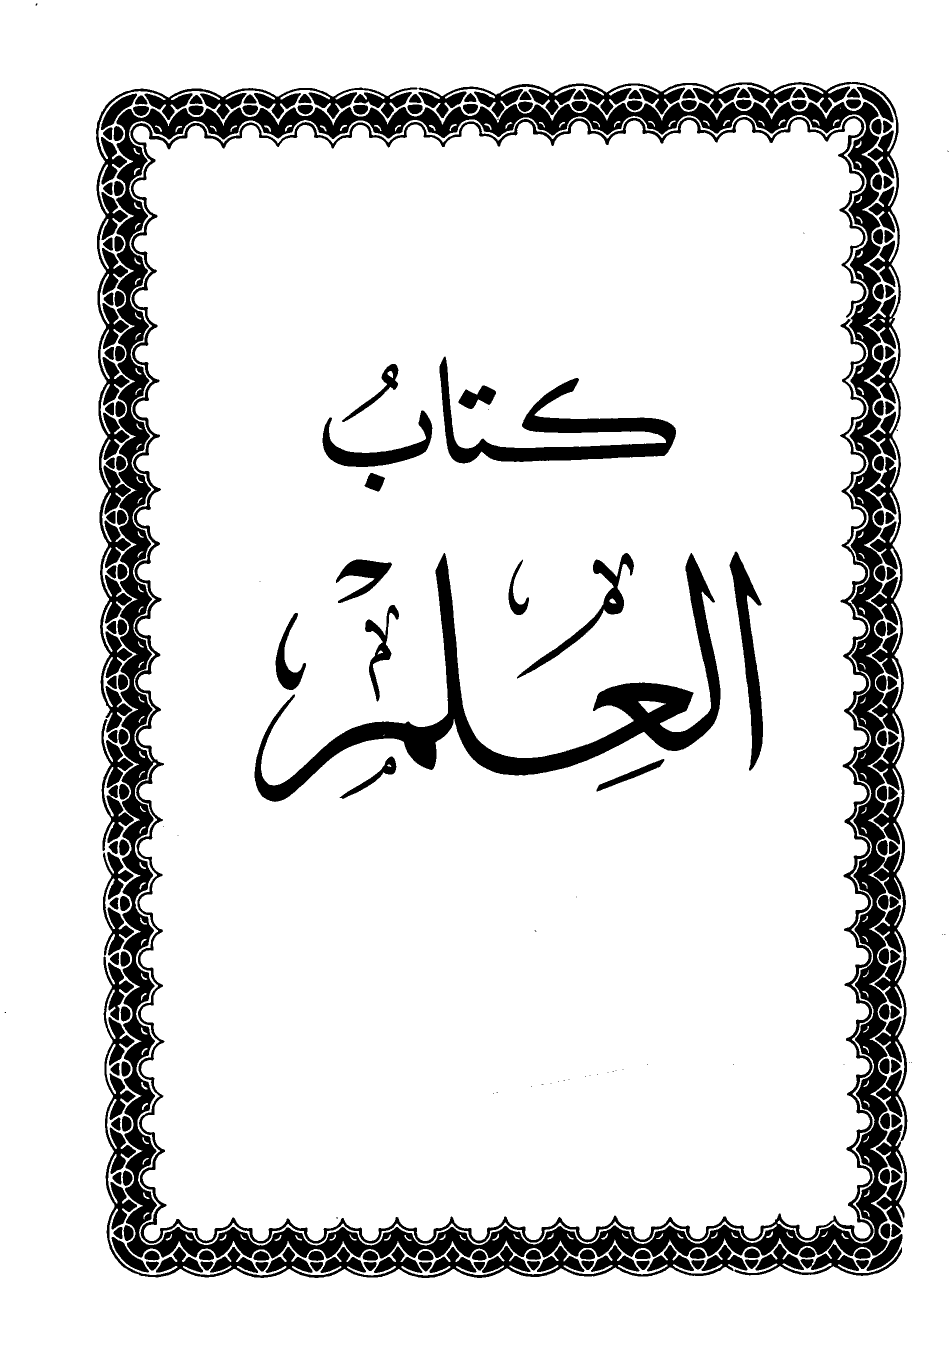 كتابُ
العِلمِ